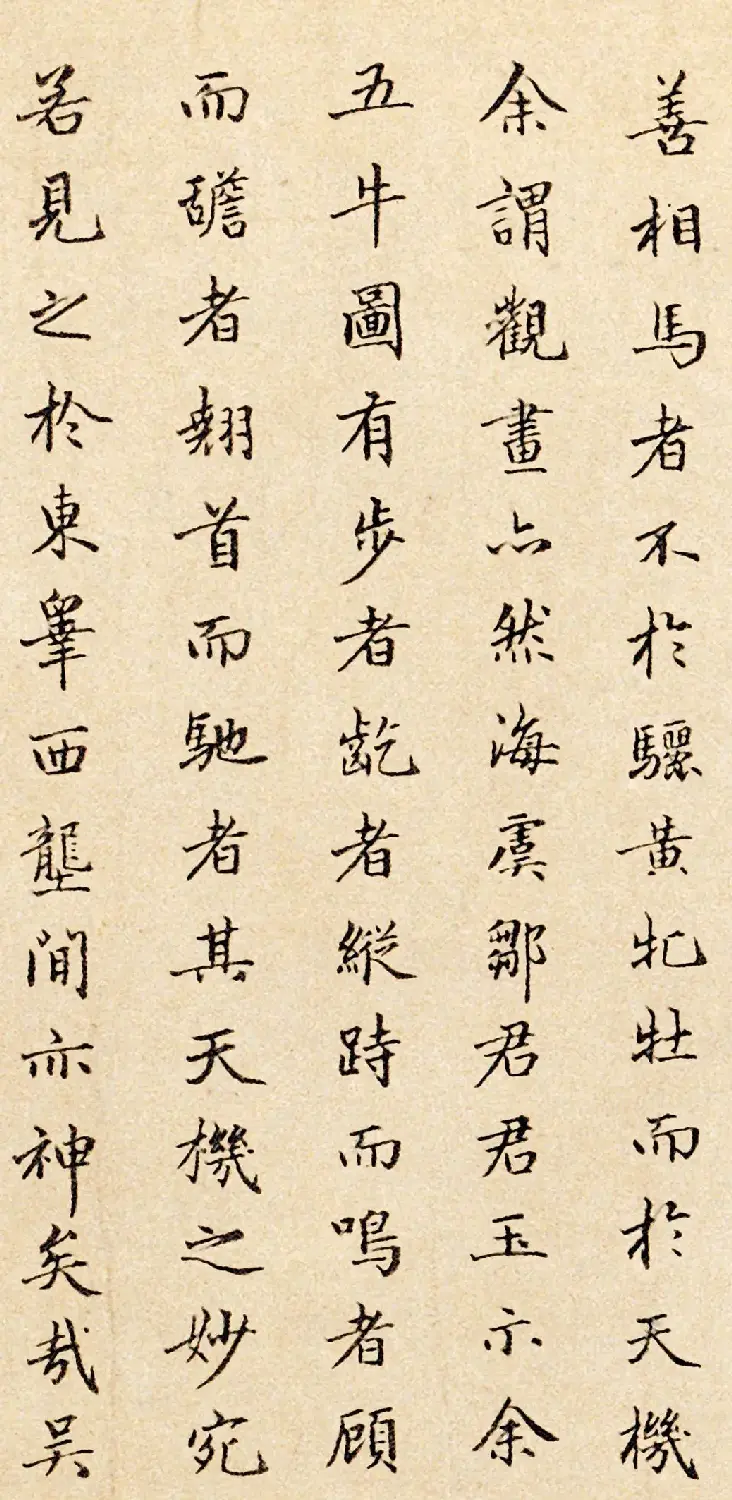 善相馬者不於驪黃牝牡而於天機
余謂觀畫亦然海虞鄒君君玉示余
五牛圖有步者齕者縱跱而鳴者顧
而者翹首而馳者其天機之妙宛
若見之於東臯西壟間亦神矣哉吳